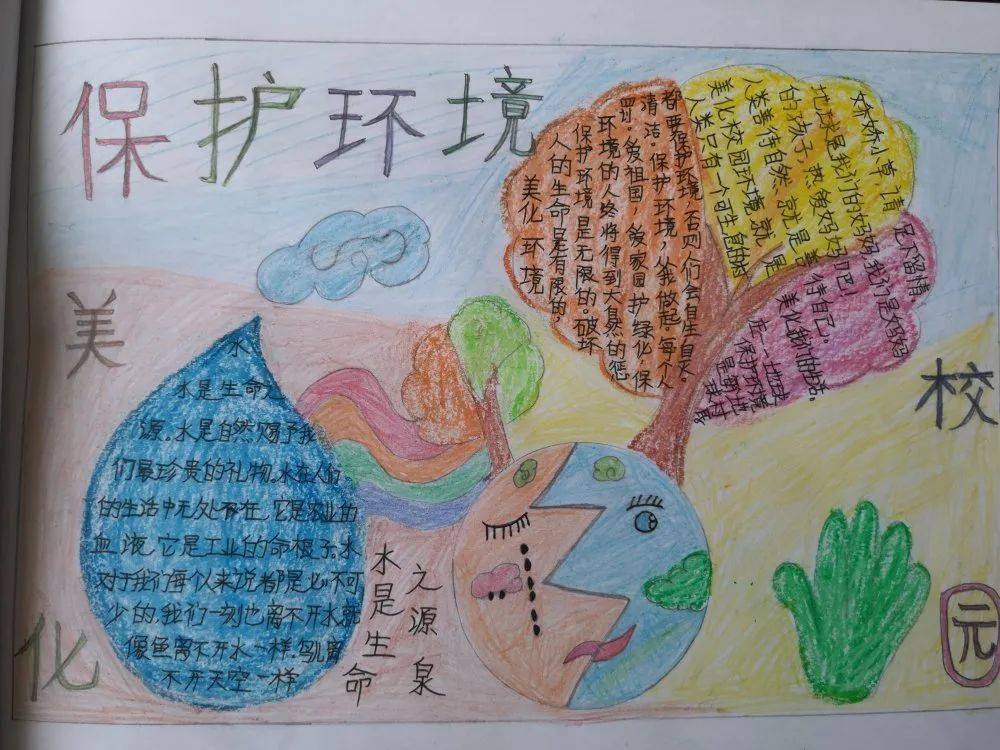 保护环境
美化校园
美化环境
人的生命是有限的,
保护环境是无限的。破坏
环境的人终将得到大自然的惩
罚。爱祖国,爱家园,护绿化,保
清洁。保护环境,从我做起。每个人
都要保护环境,否则人们会自生自灭。
娇娇小草请足下留情
地球是我们的妈妈,我们是妈妈
的孩子,热爱妈妈吧!
人类善待自然 就是善待自己。
美化校园环境 就是美化我们的生活。
人类只有一个可生息的村
庄——地球
保护环境
水
水是生命之
源。水是自然赐予我
们最珍贵的礼物。水在人们
的生活中无处不在,它是农业的
血液,它是工业的命根子。水
对于我们每个人来说都是必不可
少的,我们一刻也离不开水就
像鱼离不开水一样,鸟儿离
不开天空一样
水是生命
之源泉